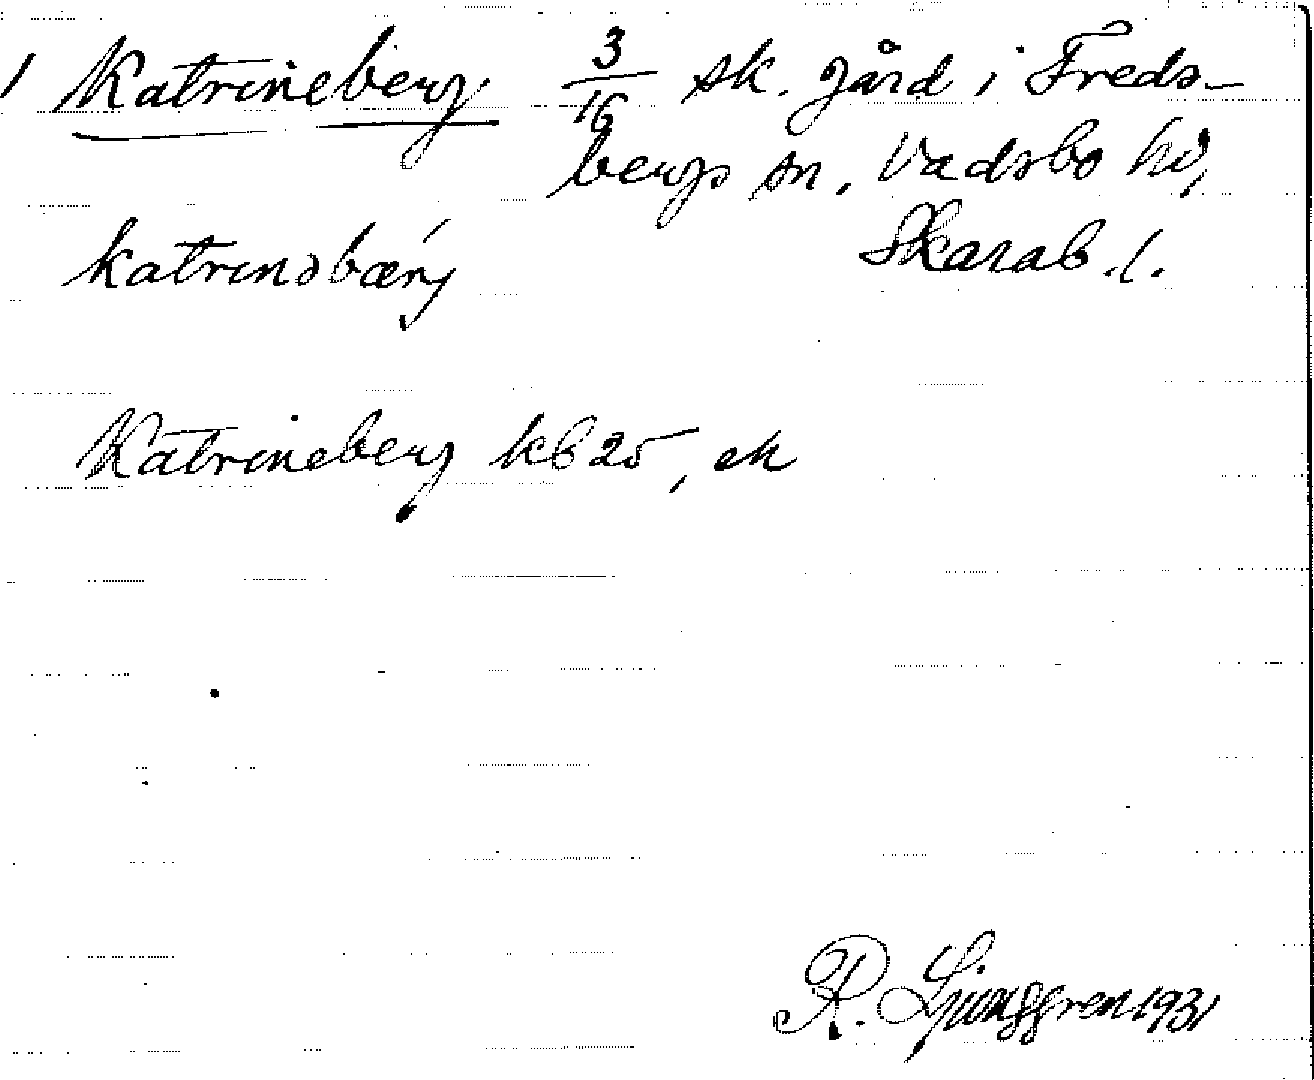 1 Katrineberg 3/16 sk. gård i Freds-
bergs sn, Vadsbo hd,
katrinəbærj́ Skarab. l.
Katrineberg kb 25, ek
R. Ljunggren 1931